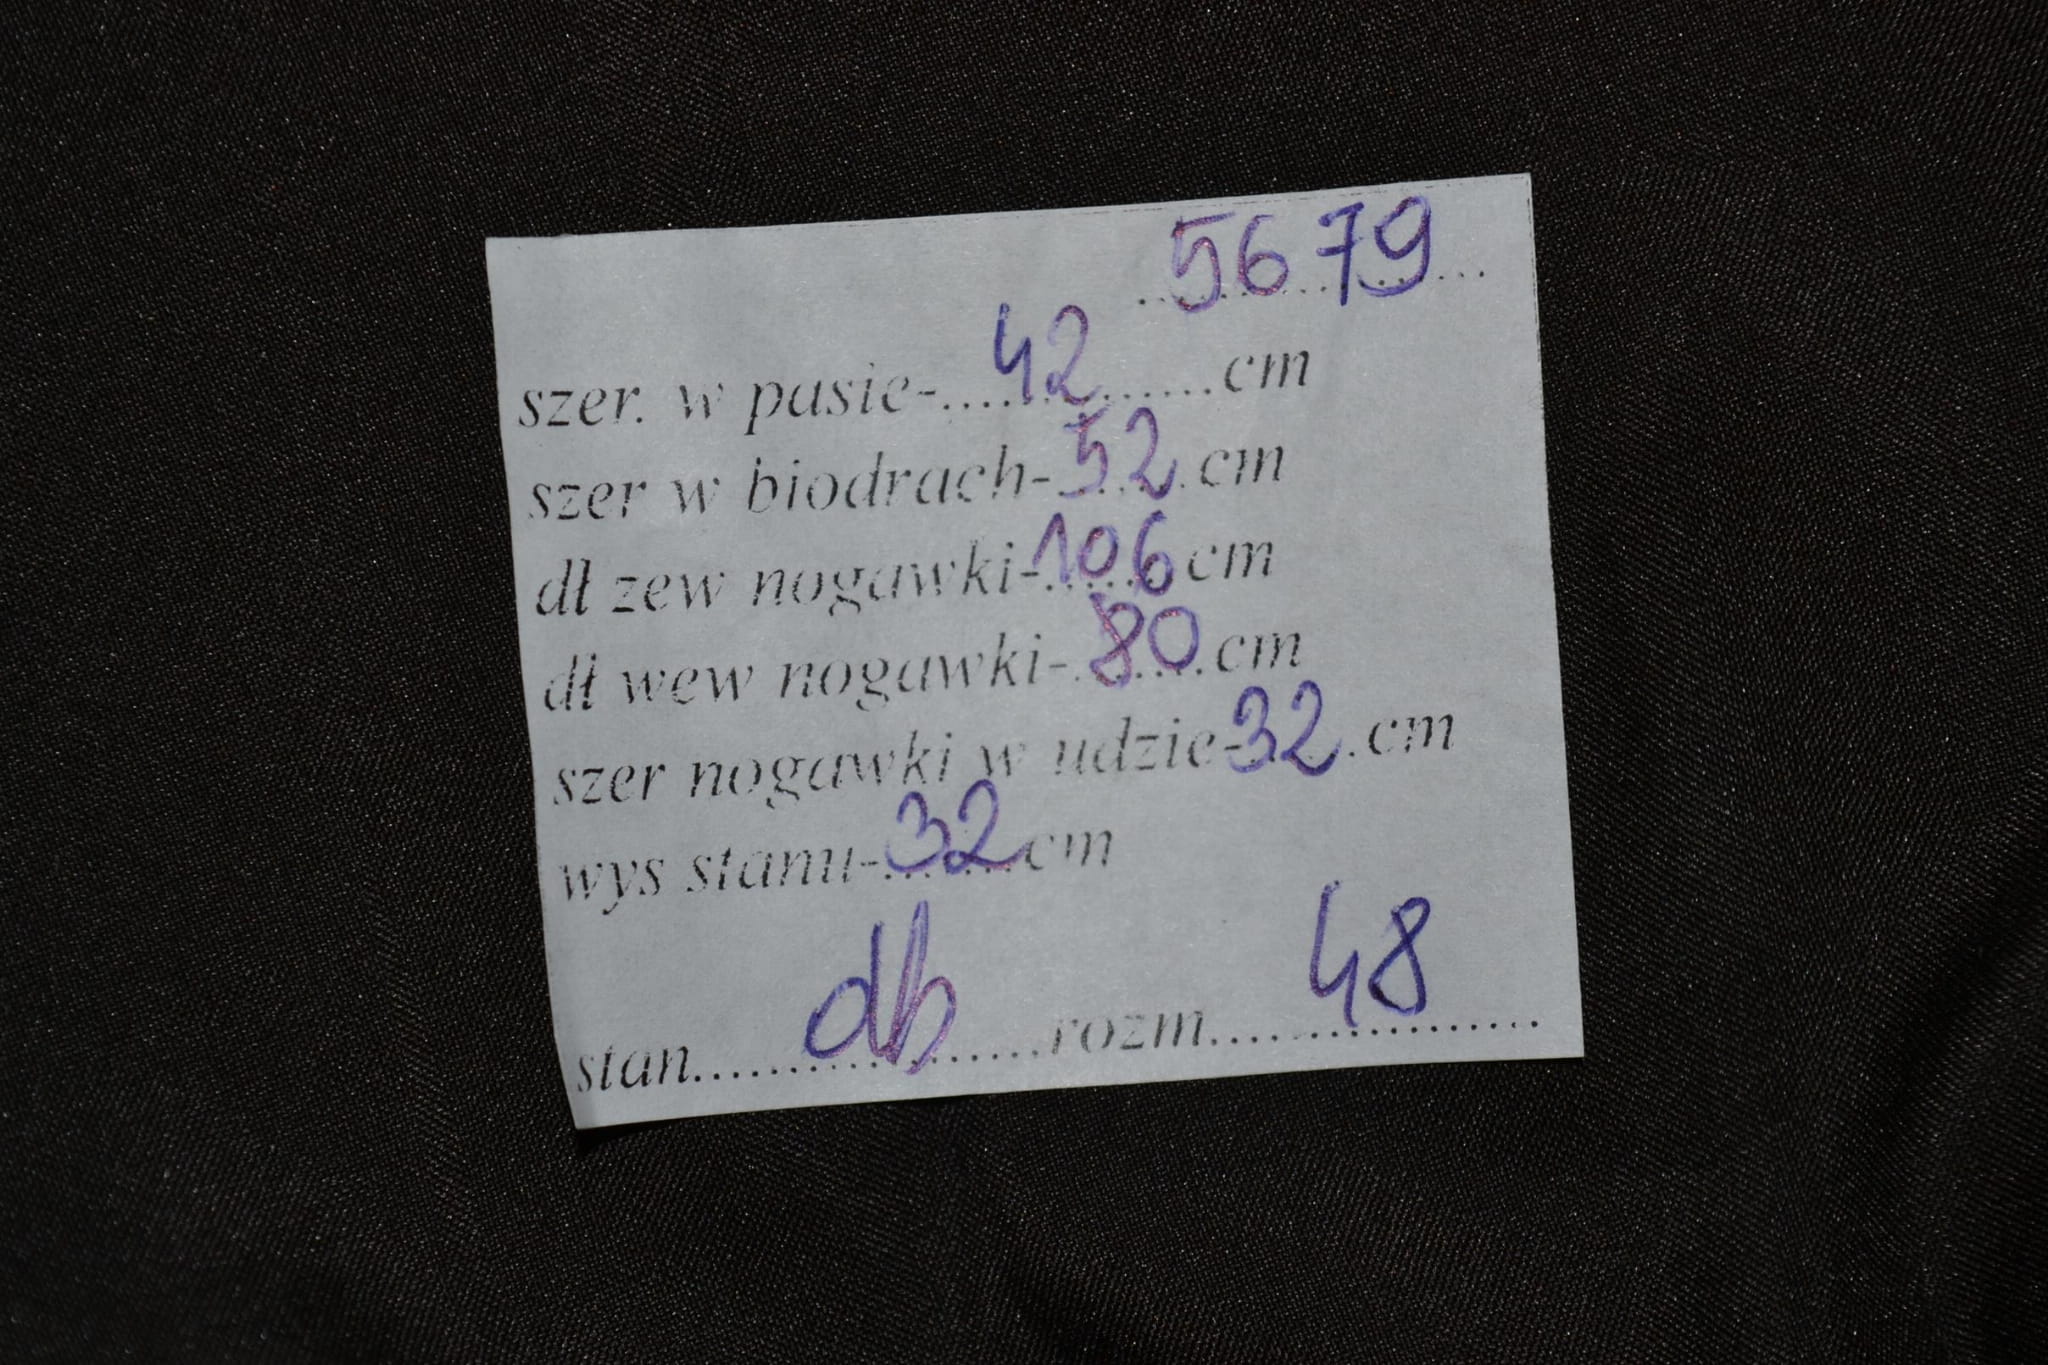 5679
szer. w pasie-....42........cm
szer w biodrach-52.cm
dł zew nogawki-106cm
dł wew nogawki-.80.cm
szer nogawki w udzie-32.cm
wys stanu-32cm
stan......db......rozm......48......